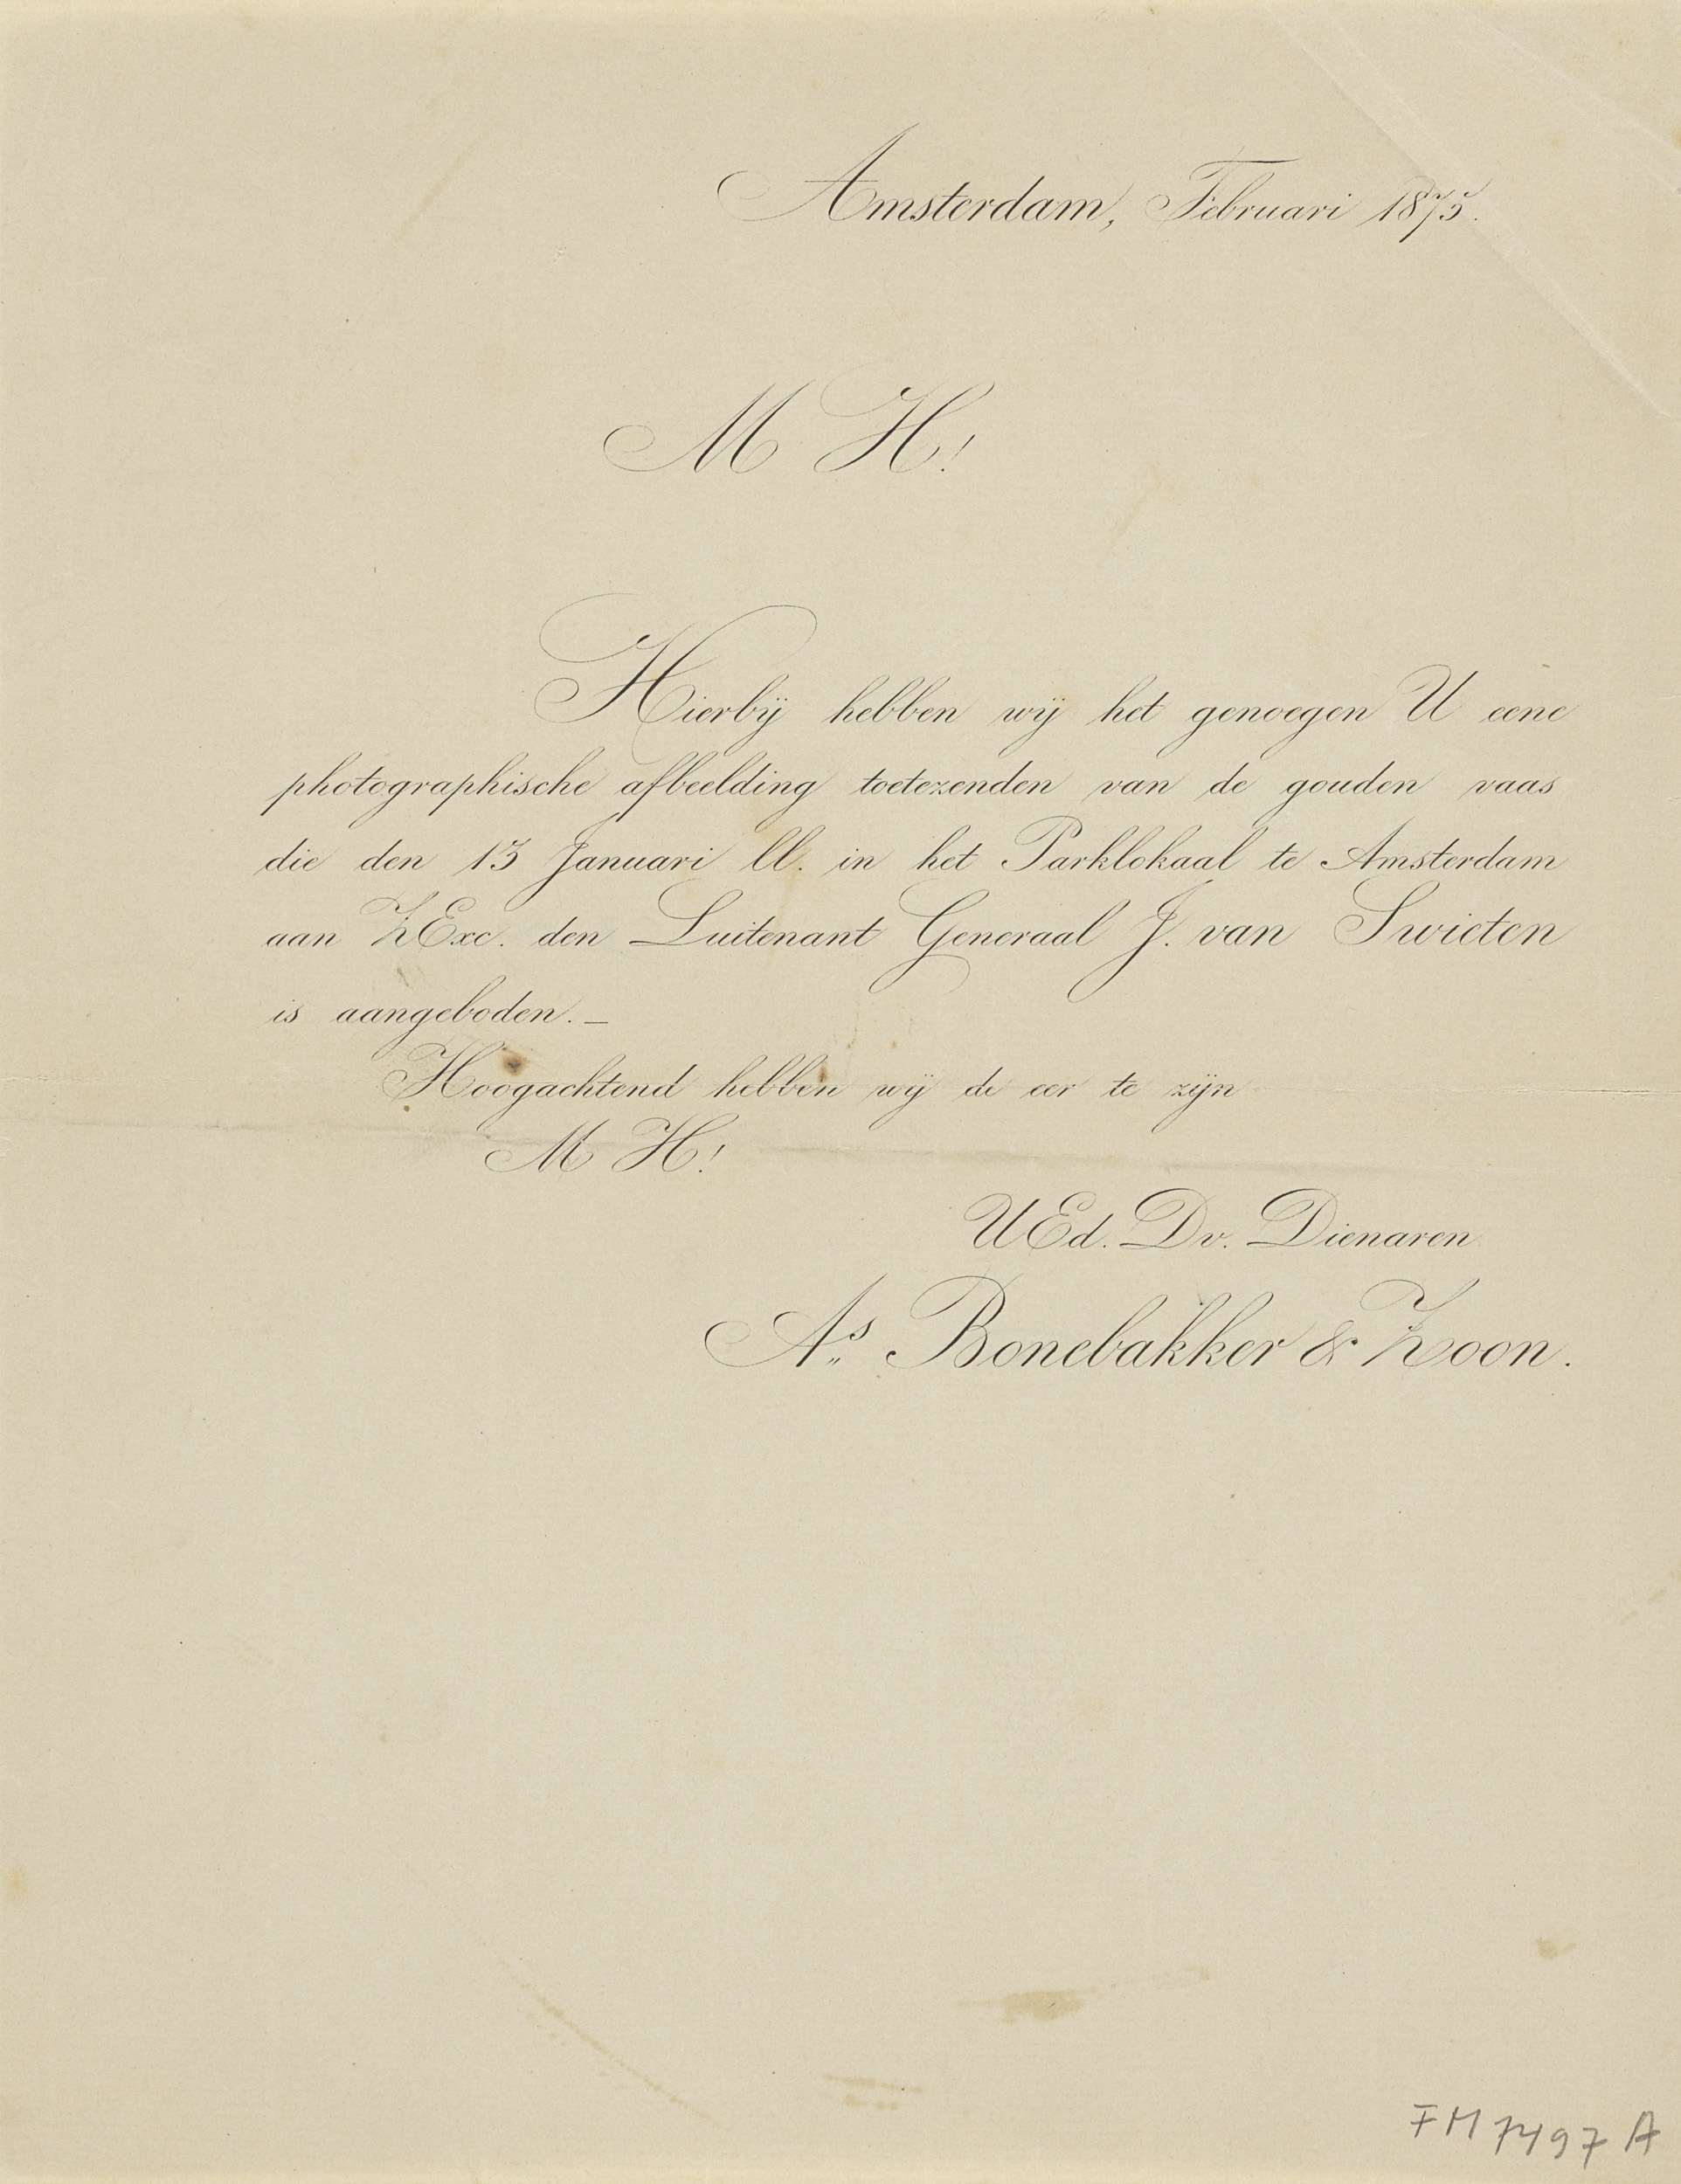 Amsterdam, Februari 1875.
M H!
Hierbij hebben wij het genoegen U eene
photographische afbeelding toetezenden van de gouden vaas
die den 13 Januari ll. in het Parklokaal te Amsterdam
aan ZExc. den Luitenant Generaal J. van Swieten
is aangeboden. _
Hoogachtend hebben wij de eer te zijn
M H!
UEd. Dv. Dienaren
As. Bonebakker & Zoon.
FM 7497 A